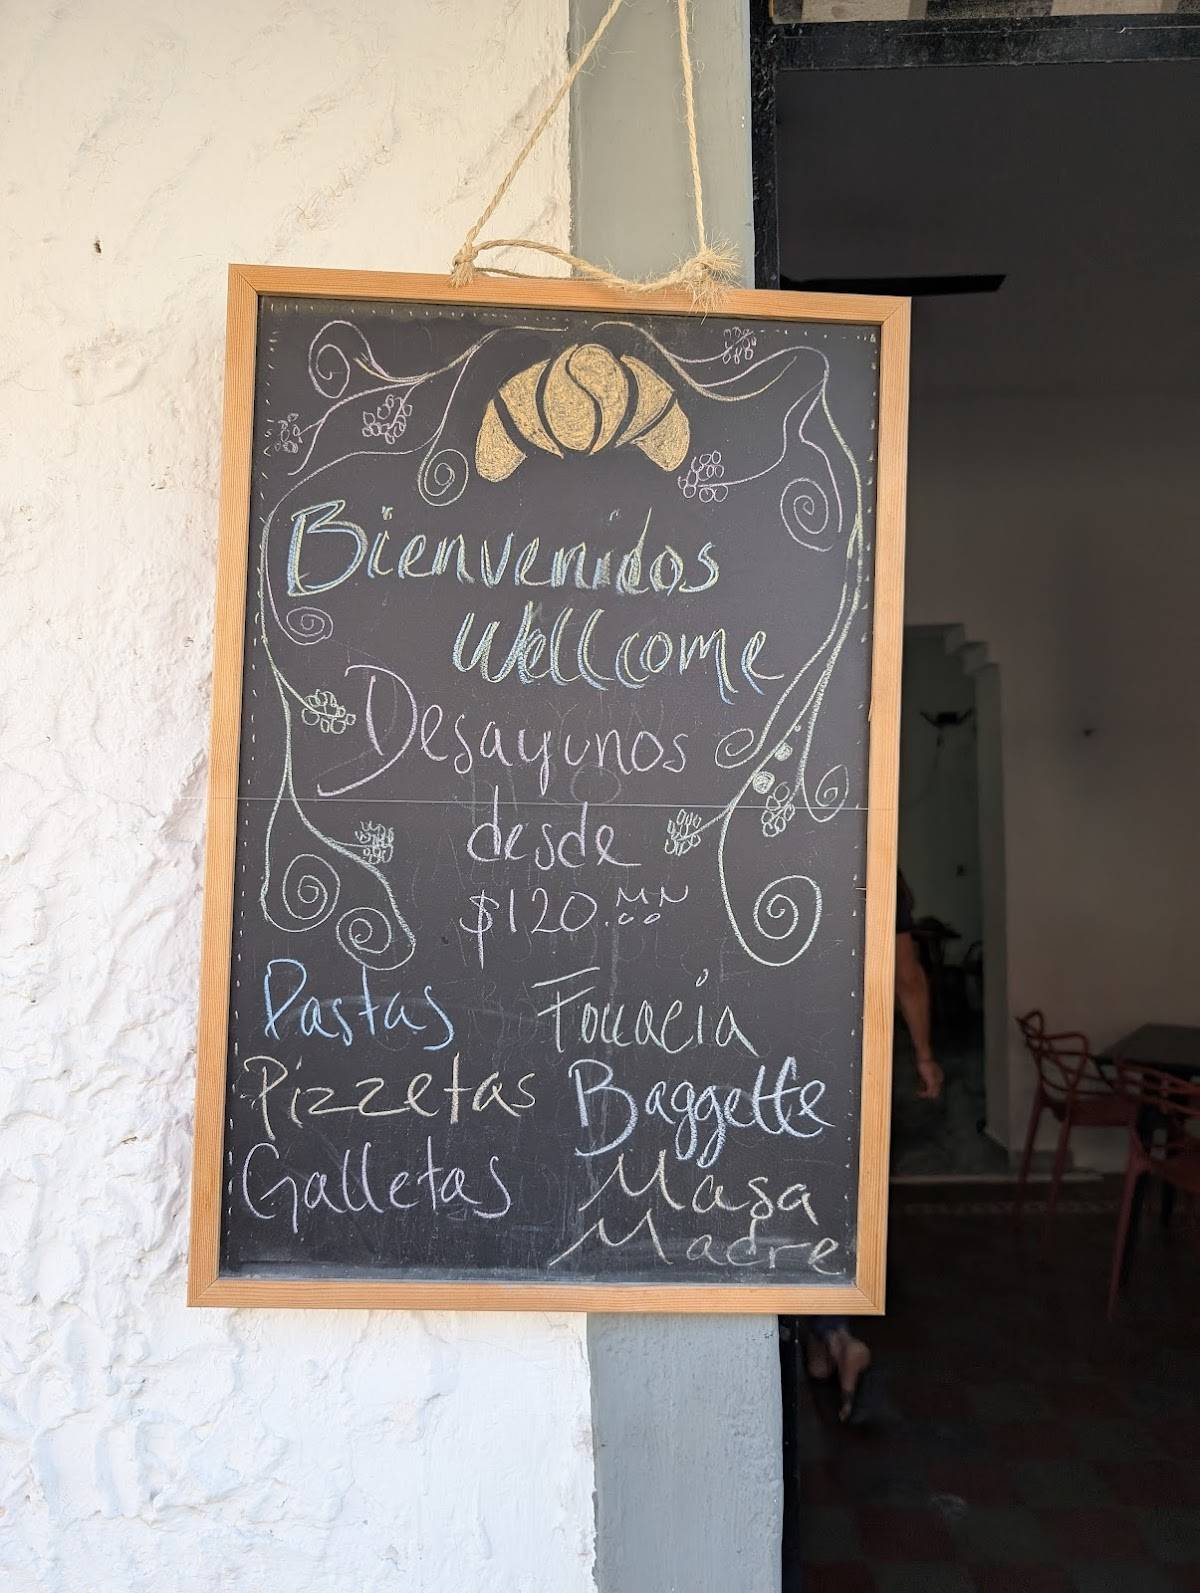 Bienvenidos
Wellcome
Desayunos
desde
$120.00 MN
Pastas
Pizzetas
Galletas
Fouuacia
Baggette
Masa
Madre